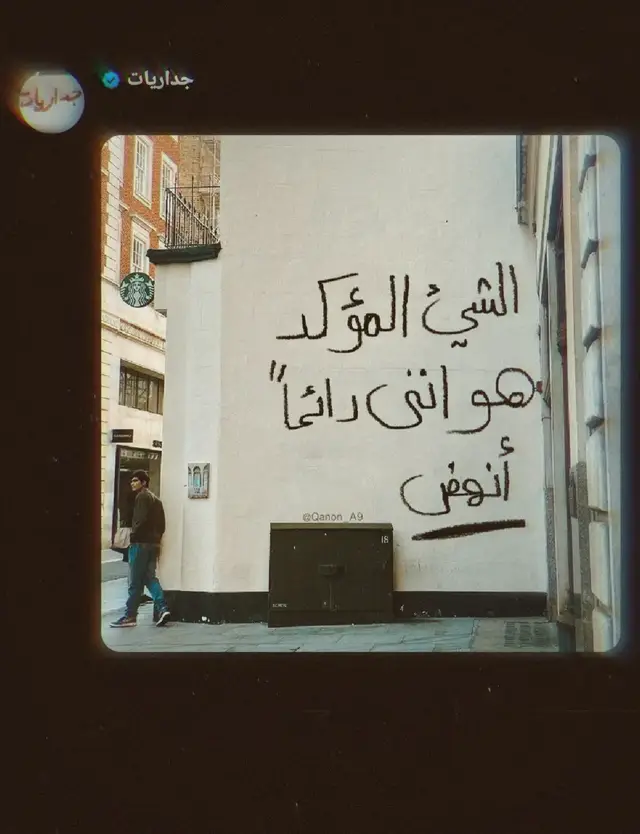 جداريات
جداريات
الشيء المؤكد
هو انني دائماً
أنهض
@Qanon_A9
18